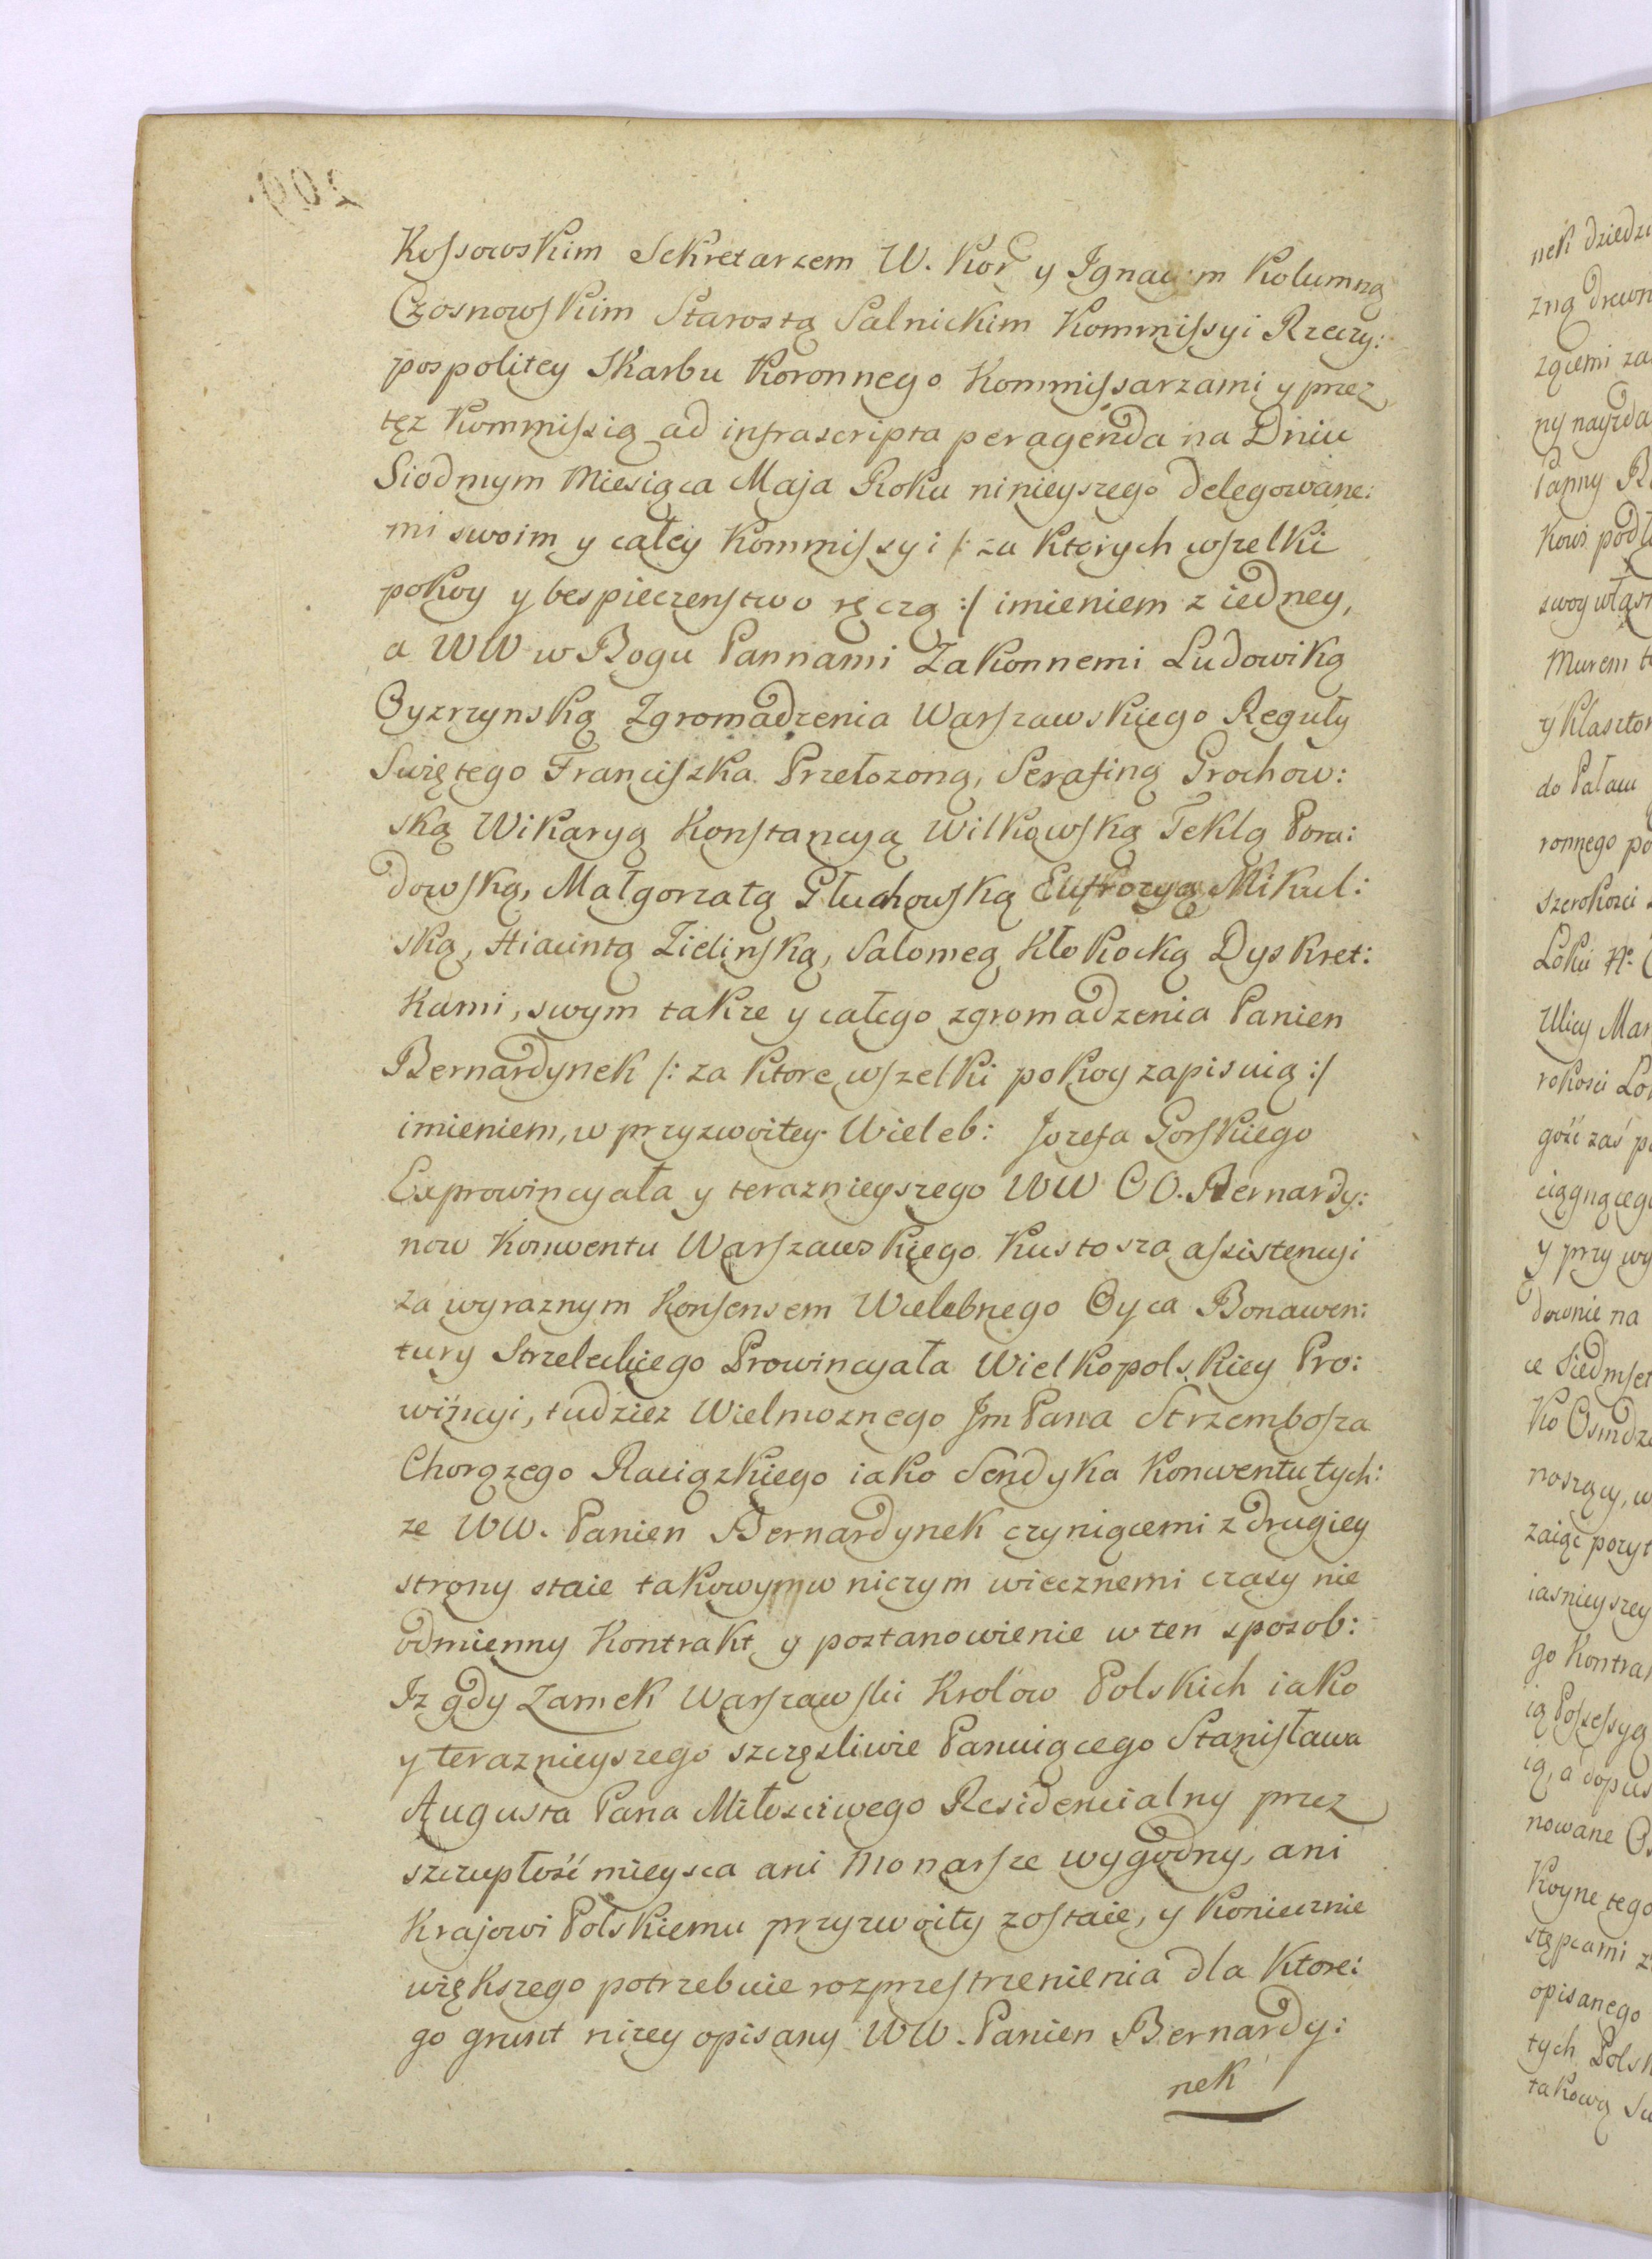 209.
Kossowskim Sekretarzem W. Kor y Ignacym Kolumną
Czosnowskim Starostą Salnickim Kommissyi Rzeczy:
pospolitey Skarbu Koronnego Kommissarzami y przez
tęz Kommissią ad infrascripta peragenda na Dniu
Siodmym Miesiąca Maja Roku ninieyszego delegowane:
mi swoim y całey Kommissyi /: za ktorych wszelki
pokoy y bespieczenstwo ręczą :/ imieniem z iedney,
a WW w Bogu Pannami Zakonnemi Ludowiką
Oyzrzynską Zgromadzenia Warszawskiego Reguły
Swiętego Franciszka Przełozoną, Serafiną Grochow:
ską Wikaryą Konstancyą Wilkowską Teklą Pora:
dowską, Małgorzatą Głuchowską Eufrozyą Mikul:
ską, Hiacintą Zielinską, Salomeą Kłokocką Dyskret:
kami, swym takze y całego zgromadzenia Panien
Bernardynek /: za ktore wszelki pokoy zapisuią :/
imieniem, w przyzwoitey Wieleb: Jozefa Gorskiego
Exprowincyała y teraznieyszego WW OO. Bernardy:
now Konwentu Warszawskiego Kustosza assistencyi
za wyraznym Konsensem Wielebnego Oyca Bonawen:
tury Strzeleckiego Prowincyała Wielkopolskiey Pro:
wincyi, tudziez Wielmoznego Jm Pana Strzembosza
Chorązego Raciązkiego iako Sendyka Konwentu tych:
ze WW. Panien Bernardynek czyniącemi z drugiey
strony staie takowym w niczym wiecznemi czasy nie
odmienny Kontrakt y postanowienie w ten sposob:
Iz gdy Zamek Warszawski Krolow Polskich iako
y teraznieyszego szczęsliwie Panuiącego Stanisława
Augusta Pana Miłosciwego Residencialny przez
szczupłość mieysca ani Monarsze wygodny, ani
Krajowi Polskiemu przyzwoity zostaie, y koniecznie
większego potrzebuie rozprzestrzenienia dla ktore:
go grunt nizey opisany WW. Panien Bernardy:
nek
nek dziedzi
zną drewn
zącemi za
ny nayzda
Panny
kows podł
swoy własn
Murem
y Klasztor
do Pałacu
ronnego po
szerokosci
Łokci No
Ulicy Mar
rokosci Ło
gość zaś p
ciągnącego
y przy wy
downie na
ce Siedmset
ko Osmdz
noszący, w
zaiąc pozyt
iasnieyszey
go Kontrak
ią Possessyą
ią, a dopus
nowane
Koyne tego
stępcami z
opisanego
tych Polsk
takową Su